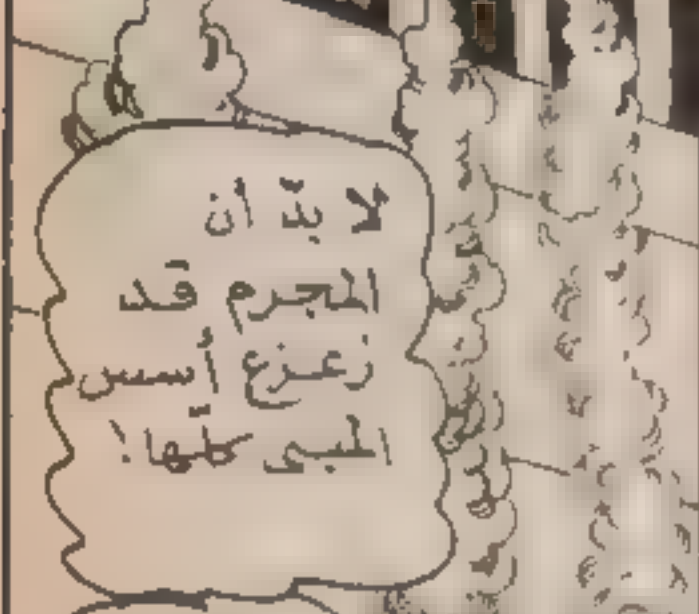 لا بدّ أن
المجرم قد
زعزع أسس
المبنى كلّها!